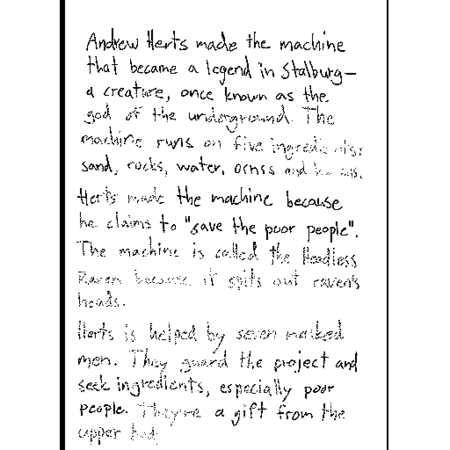 Andrew Herts made the machine
that became a legend in Stalburg—
a creature, once known as the
god of the underground. The
machine runs on five ingredients:
sand, rocks, water, and
Herts made the machine because
he claims to "save the poor people".
The machine is called the Headless
Raven because it spits out raven's
heads.
Herts is helped by seven masked
men. They guard the project and
seek ingredients, especially poor
people. They're a gift from the
upper